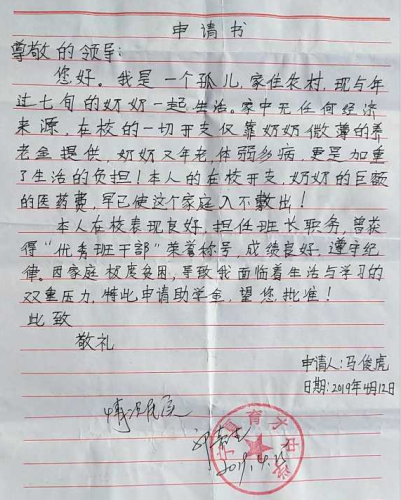 申请书
尊敬的领导:
您好。我是一个孤儿,家住农村,现与年
过七旬的奶奶一起生活。家中无任何经济
来源,在校的一切开支仅靠奶奶微薄的养
老金提供,奶奶又年老,体弱多病,更是加重
了生活的负担!本人的在校开支,奶奶的巨额
的医药费,早已使这个家庭入不敷出!
本人在校表现良好,担任班长职务,曾获
得“优秀班干部”荣誉称号,成绩良好,遵守纪
律。因家庭极度贫困,导致我面临着生活与学习的
双重压力,特此申请助学金,望您批准!
此致
敬礼
申请人:马俊虎
日期:2019年4月12日
情况属实
2019.4.12